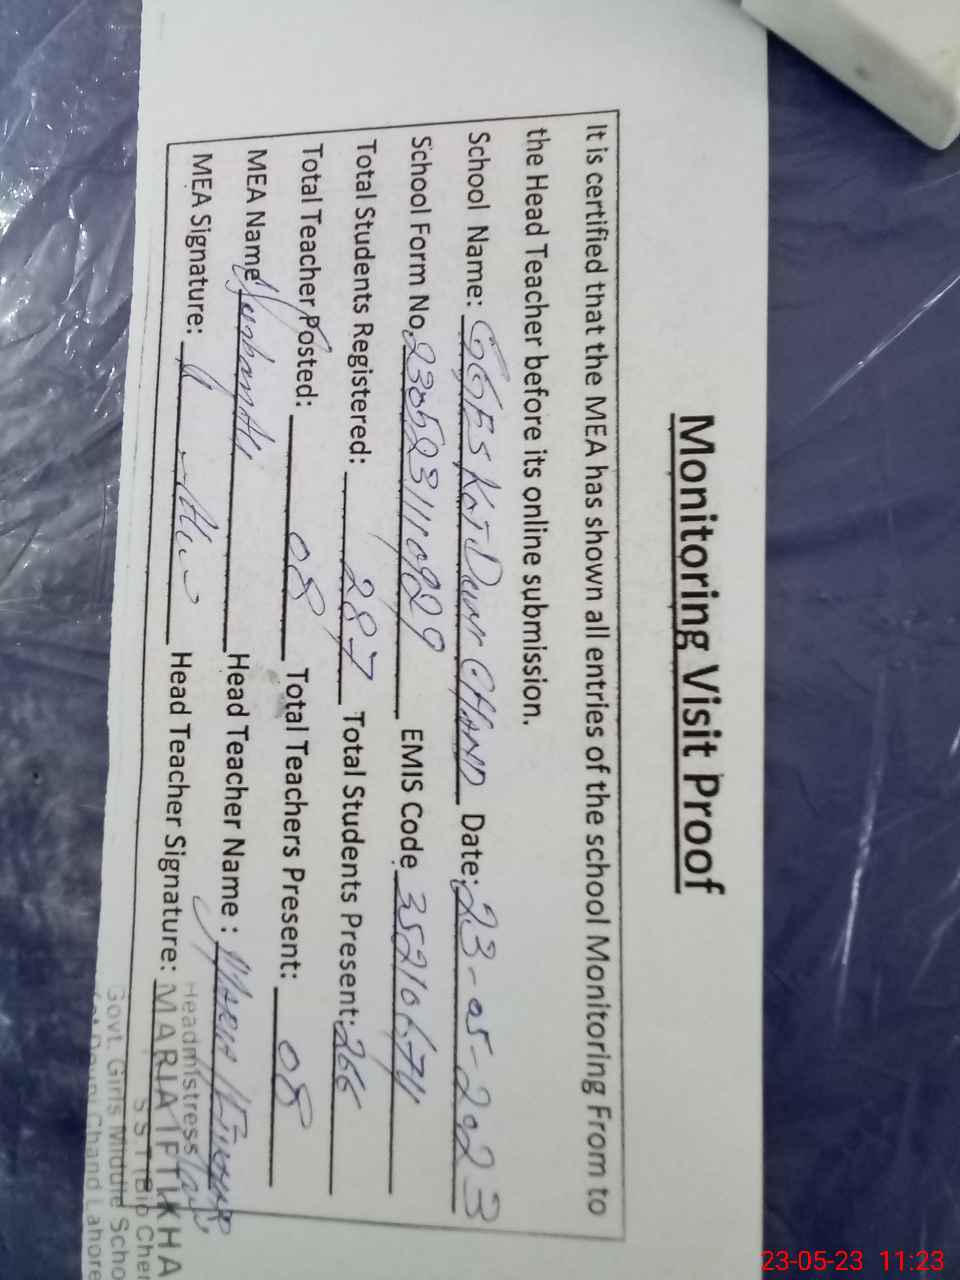 Monitoring Visit Proof
It is certified that the MEA has shown all entries of the school Monitoring From to
the Head Teacher before its online submission.
School Name: GGES Kot Duni CHAND Date: 23-05-2023
School Form No. 2305231110929 EMIS Code 35210674
Total Students Registered: 287 Total Students Present: 266
Total Teacher Posted: 08 Total Teachers Present: 08
MEA Name Head Teacher Name : Maria
MEA Signature: Head Teacher Signature:
Headmistress
MARIA IFTIKHA
S S T (Bio Chem
Govt. Girls Middle Scho
Chand Lahore
23-05-23 11:23